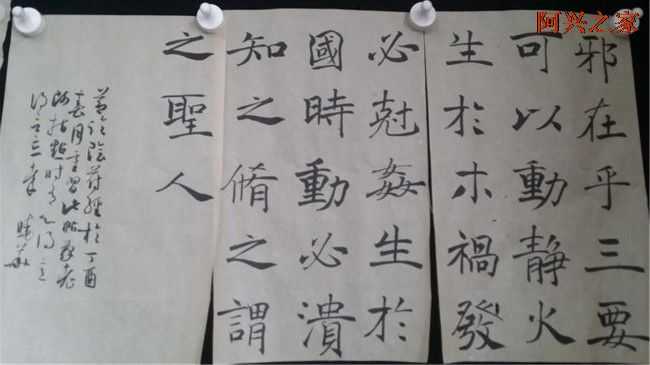 阿兴之家
邪在乎三要
可以動静火
生於木禍發
必尅姦生於
國時動必潰
知之脩之謂
之聖人
陰符經於丁酉